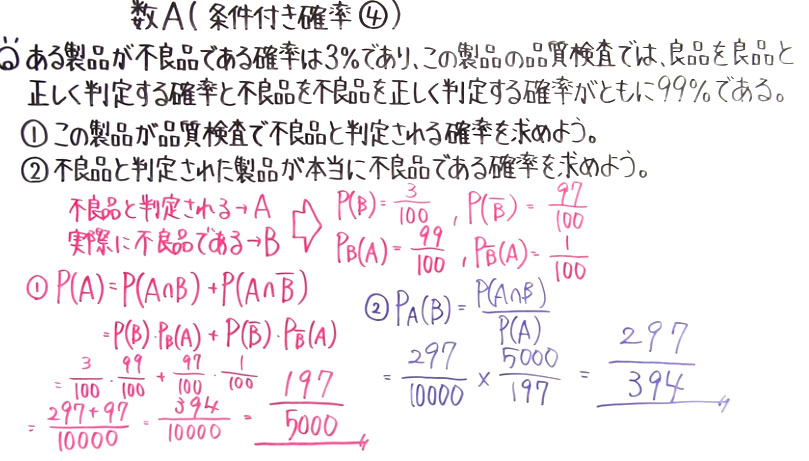 数A(条件付き確率④)
Q ある製品が不良品である確率は3%であり、この製品の品質検査では、良品を良品と
正しく判定する確率と不良品を不良品を正しく判定する確率がともに99%である。
① この製品が品質検査で不良品と判定される確率を求めよう。
② 不良品と判定された製品が本当に不良品である確率を求めよう。
不良品と判定される→A
実際に不良品である→B
⇨ P(B)=3/100 , P(B̅)=97/100
P_B(A)=99/100 , P_B̅(A)=1/100
① P(A)=P(A∩B)+P(A∩B̅)
=P(B)・P_B(A)+P(B̅)・P_B̅(A)
=3/100・99/100+97/100・1/100
=297+97/10000=394/10000=197/5000
② P_A(B)=P(A∩B)/P(A)
=297/10000×5000/197=297/394